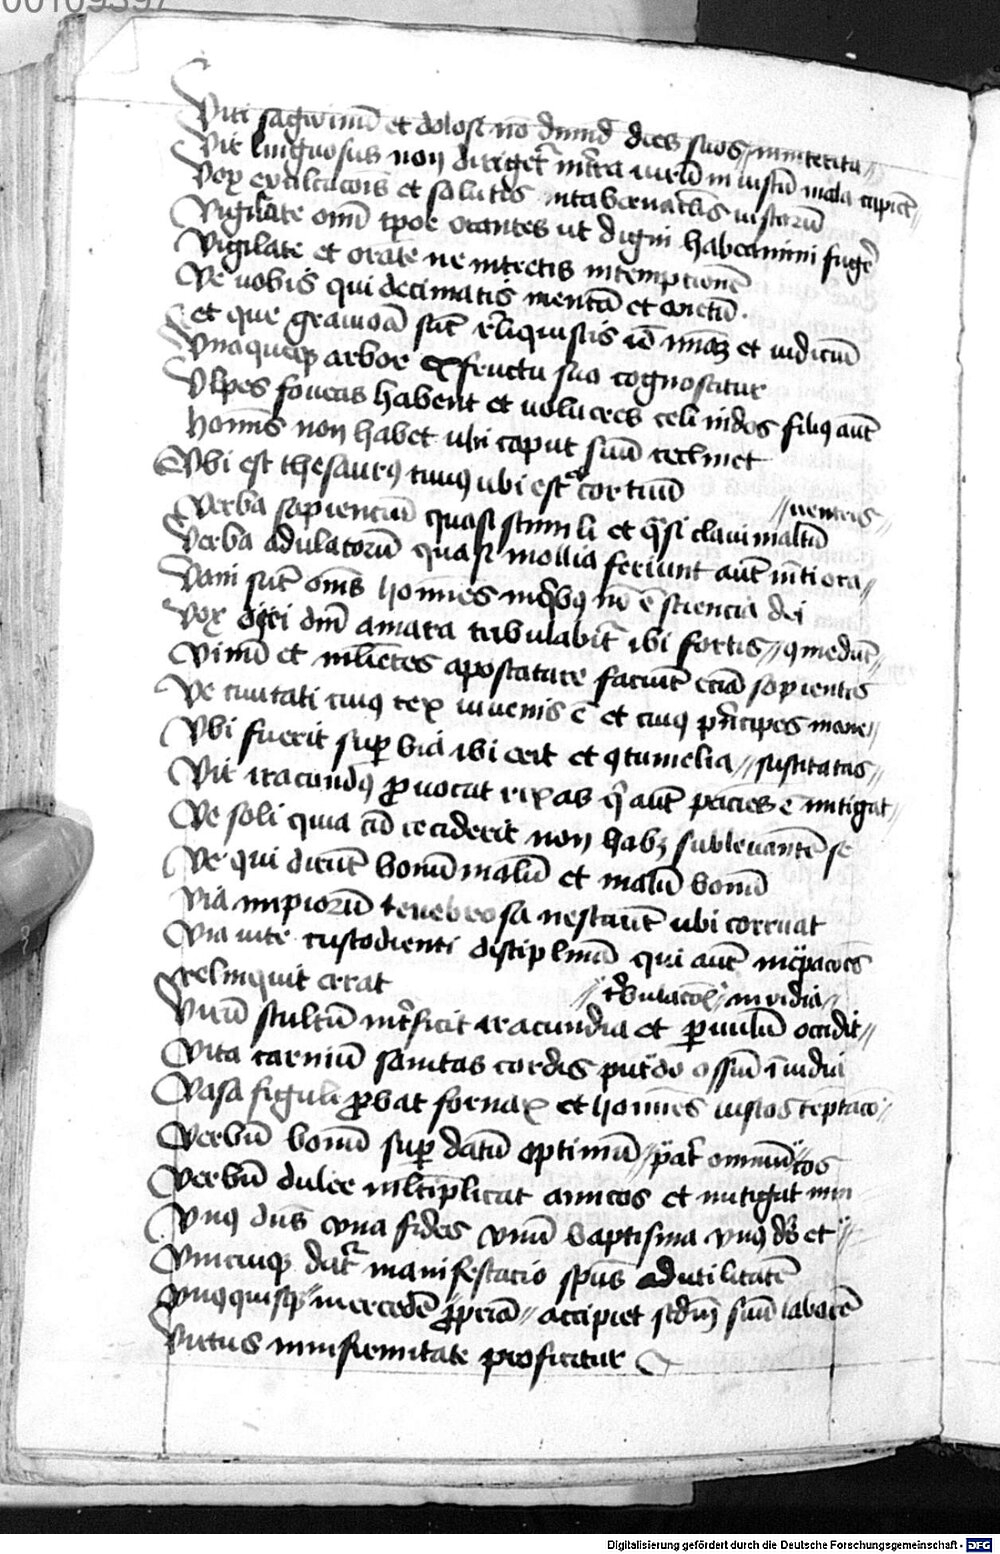 00109397
Viri sagwinū et dolosi nō dimid dies suos // in interitu //
Vir linguosus non dirigetr in tra virū in iustū mala capiet //
Vox exultacōis et salutis in tabernaclis iustorū
Vigilate omī tpoe orantes ut digni habeamini fugē
Vigilate et orate ne intretis in temptacionē
Ve vobis qui decimatis mentā et anetū
et que graviora sūt reliquistis id misam et iudiciū
Vnaqueqz arbor ex fructu suo cognoscitur
Vlpes foveas habent et volucres celi nidos filius aūt
hominis non habet ubi caput suū reclinet
Vbi est thesaurus tuus ubi est cor tuum
// ventris //
Verba sapienciū quasi stimuli et qsi clavi in altū
Verba adulatorū quasi mollia feriunt aūt inti ora //
Vani sūt omēs homīes in qbus nō ē sciencia dei
Vox diei dnī amara tribulabitr ibi fortis // q medūt //
Vinū et mlieres apostatare faciūt eciā sapientes
Ve civitati cuius rex iuvenis ē et cuius pncipes mane //
Vbi fuerit supbia ibi erit et contumelia // suscitatas //
Vir iracundus provocat rixas q aūt paciēs ē mitigat
Ve soli quia cū ceciderit non habz sublevantē se
Ve qui dicūt bonū malū et malū bonū
Via impiorū tenebrosa nesciūt ubi corruat
Via vite custodienti disciplinā qui aūt increpacōes
relinquit errat
// tbulacōis // invidia //
Virū stultū intficit iracundia et pvulū occidit //
Vita carniū sanitas cordis putdo ossiū invidia
Vasa figuli probat fornax et homīes iustos temptacō //
Verbū bonū super datū optimū // pat omniū cos
Verbū dulce mltiplicat amicos et mitigat inim
Vnus dūs una fides unū baptisma unus ds et //
Vnicuique datr manifestacio spūs ad utilitatē
Vnusquisqz mercedē propriā // accipiet scdm suū laborē
Virtus in infirmitate proficitur
Digitalisierung gefördert durch die Deutsche Forschungsgemeinschaft - DFG